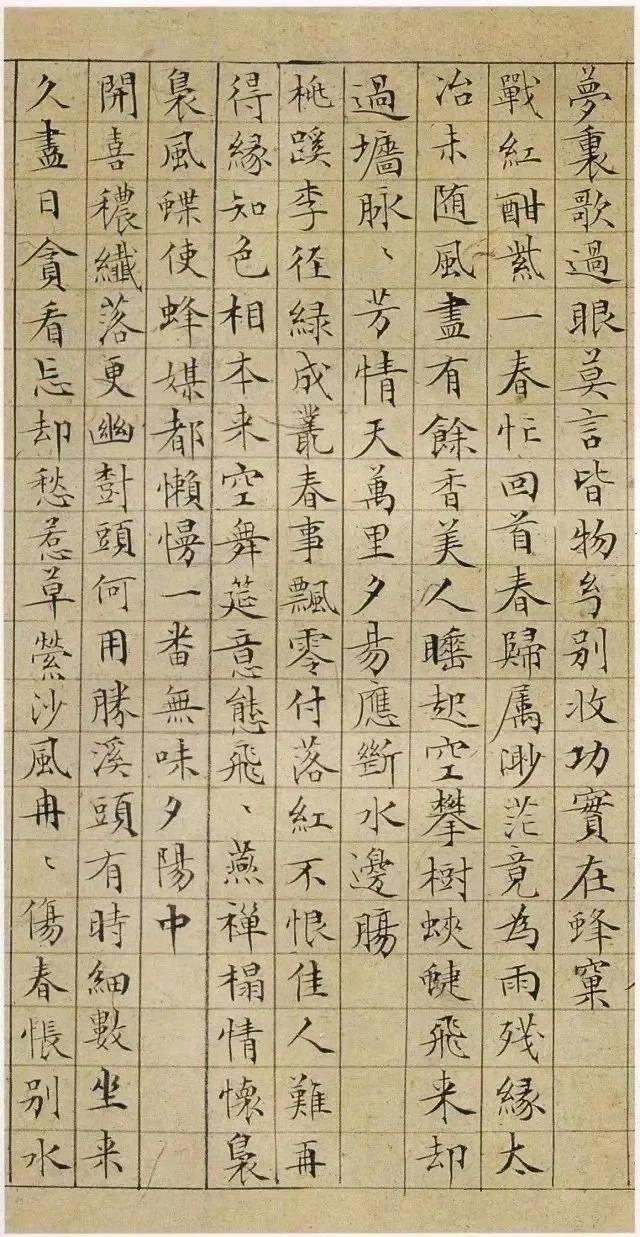 夢裏歌過眼莫言皆物幻別收功實在蜂窠
戰紅酣紫一春忙回首春歸屬渺茫竟為雨殘緣太
冶未随風盡有餘香美人睡起空攀樹蛺蝶飛来却
過墻脉、芳情天萬里夕昜應斷水邊腸
桃蹊李徑緑成叢春事飄零付落紅不恨佳人難再
得緣知色相本来空舞筵意態飛、燕禪榻情懷裊
裊風蝶使蜂媒都懶慢一畨無味夕陽中
開喜穠纖落更幽樹頭何用勝溪頭有時細數坐来
久盡日貪看忘却愁惹草縈沙風冉、傷春悵別水